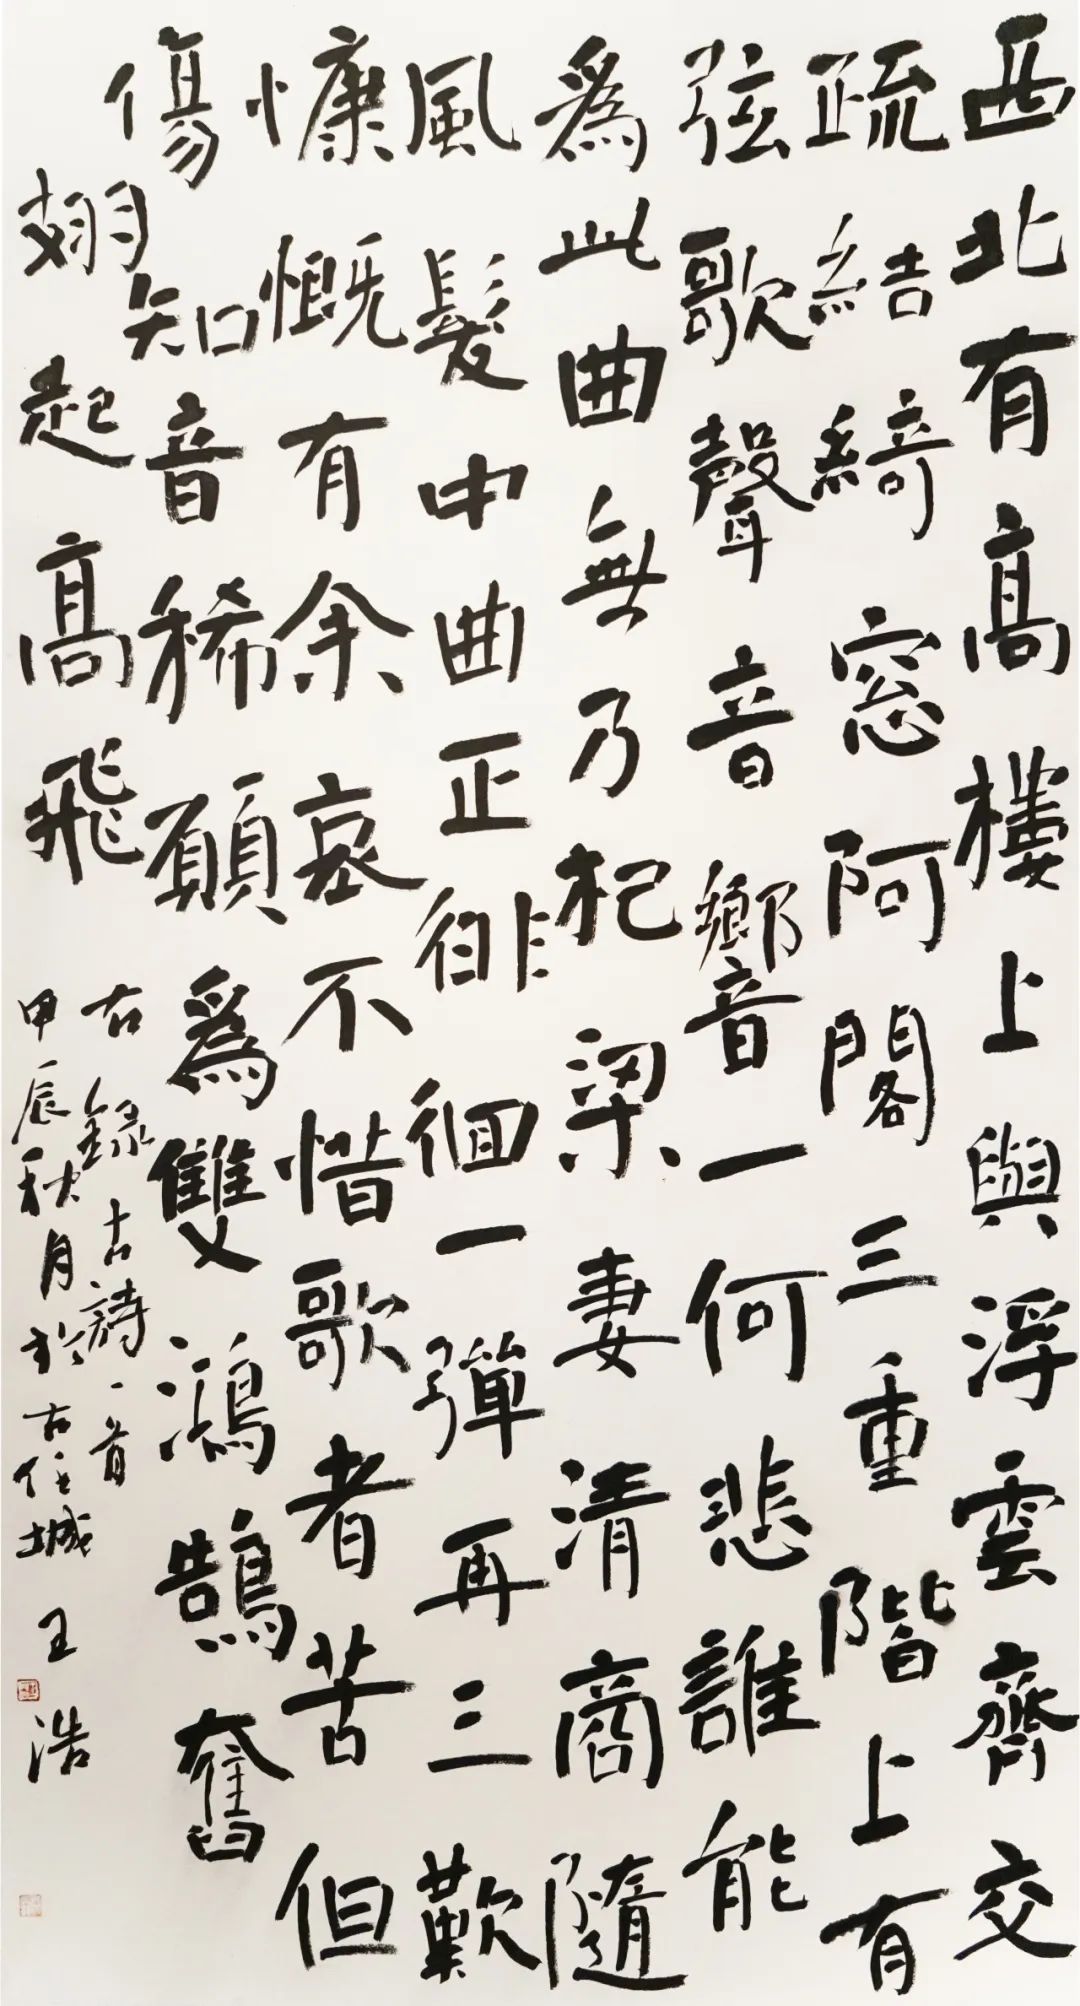 西北有高樓上與浮雲齊交
疏結綺窓阿閣三重階上有
弦歌聲音響一何悲誰能
為此曲無乃杞梁妻清商隨
風發中曲正徘徊一彈再三歎
慷慨有余哀不惜歌者苦但
傷知音稀願為雙鴻鵠奮
翅起高飛
右錄古詩一首
甲辰秋月於古任城王浩